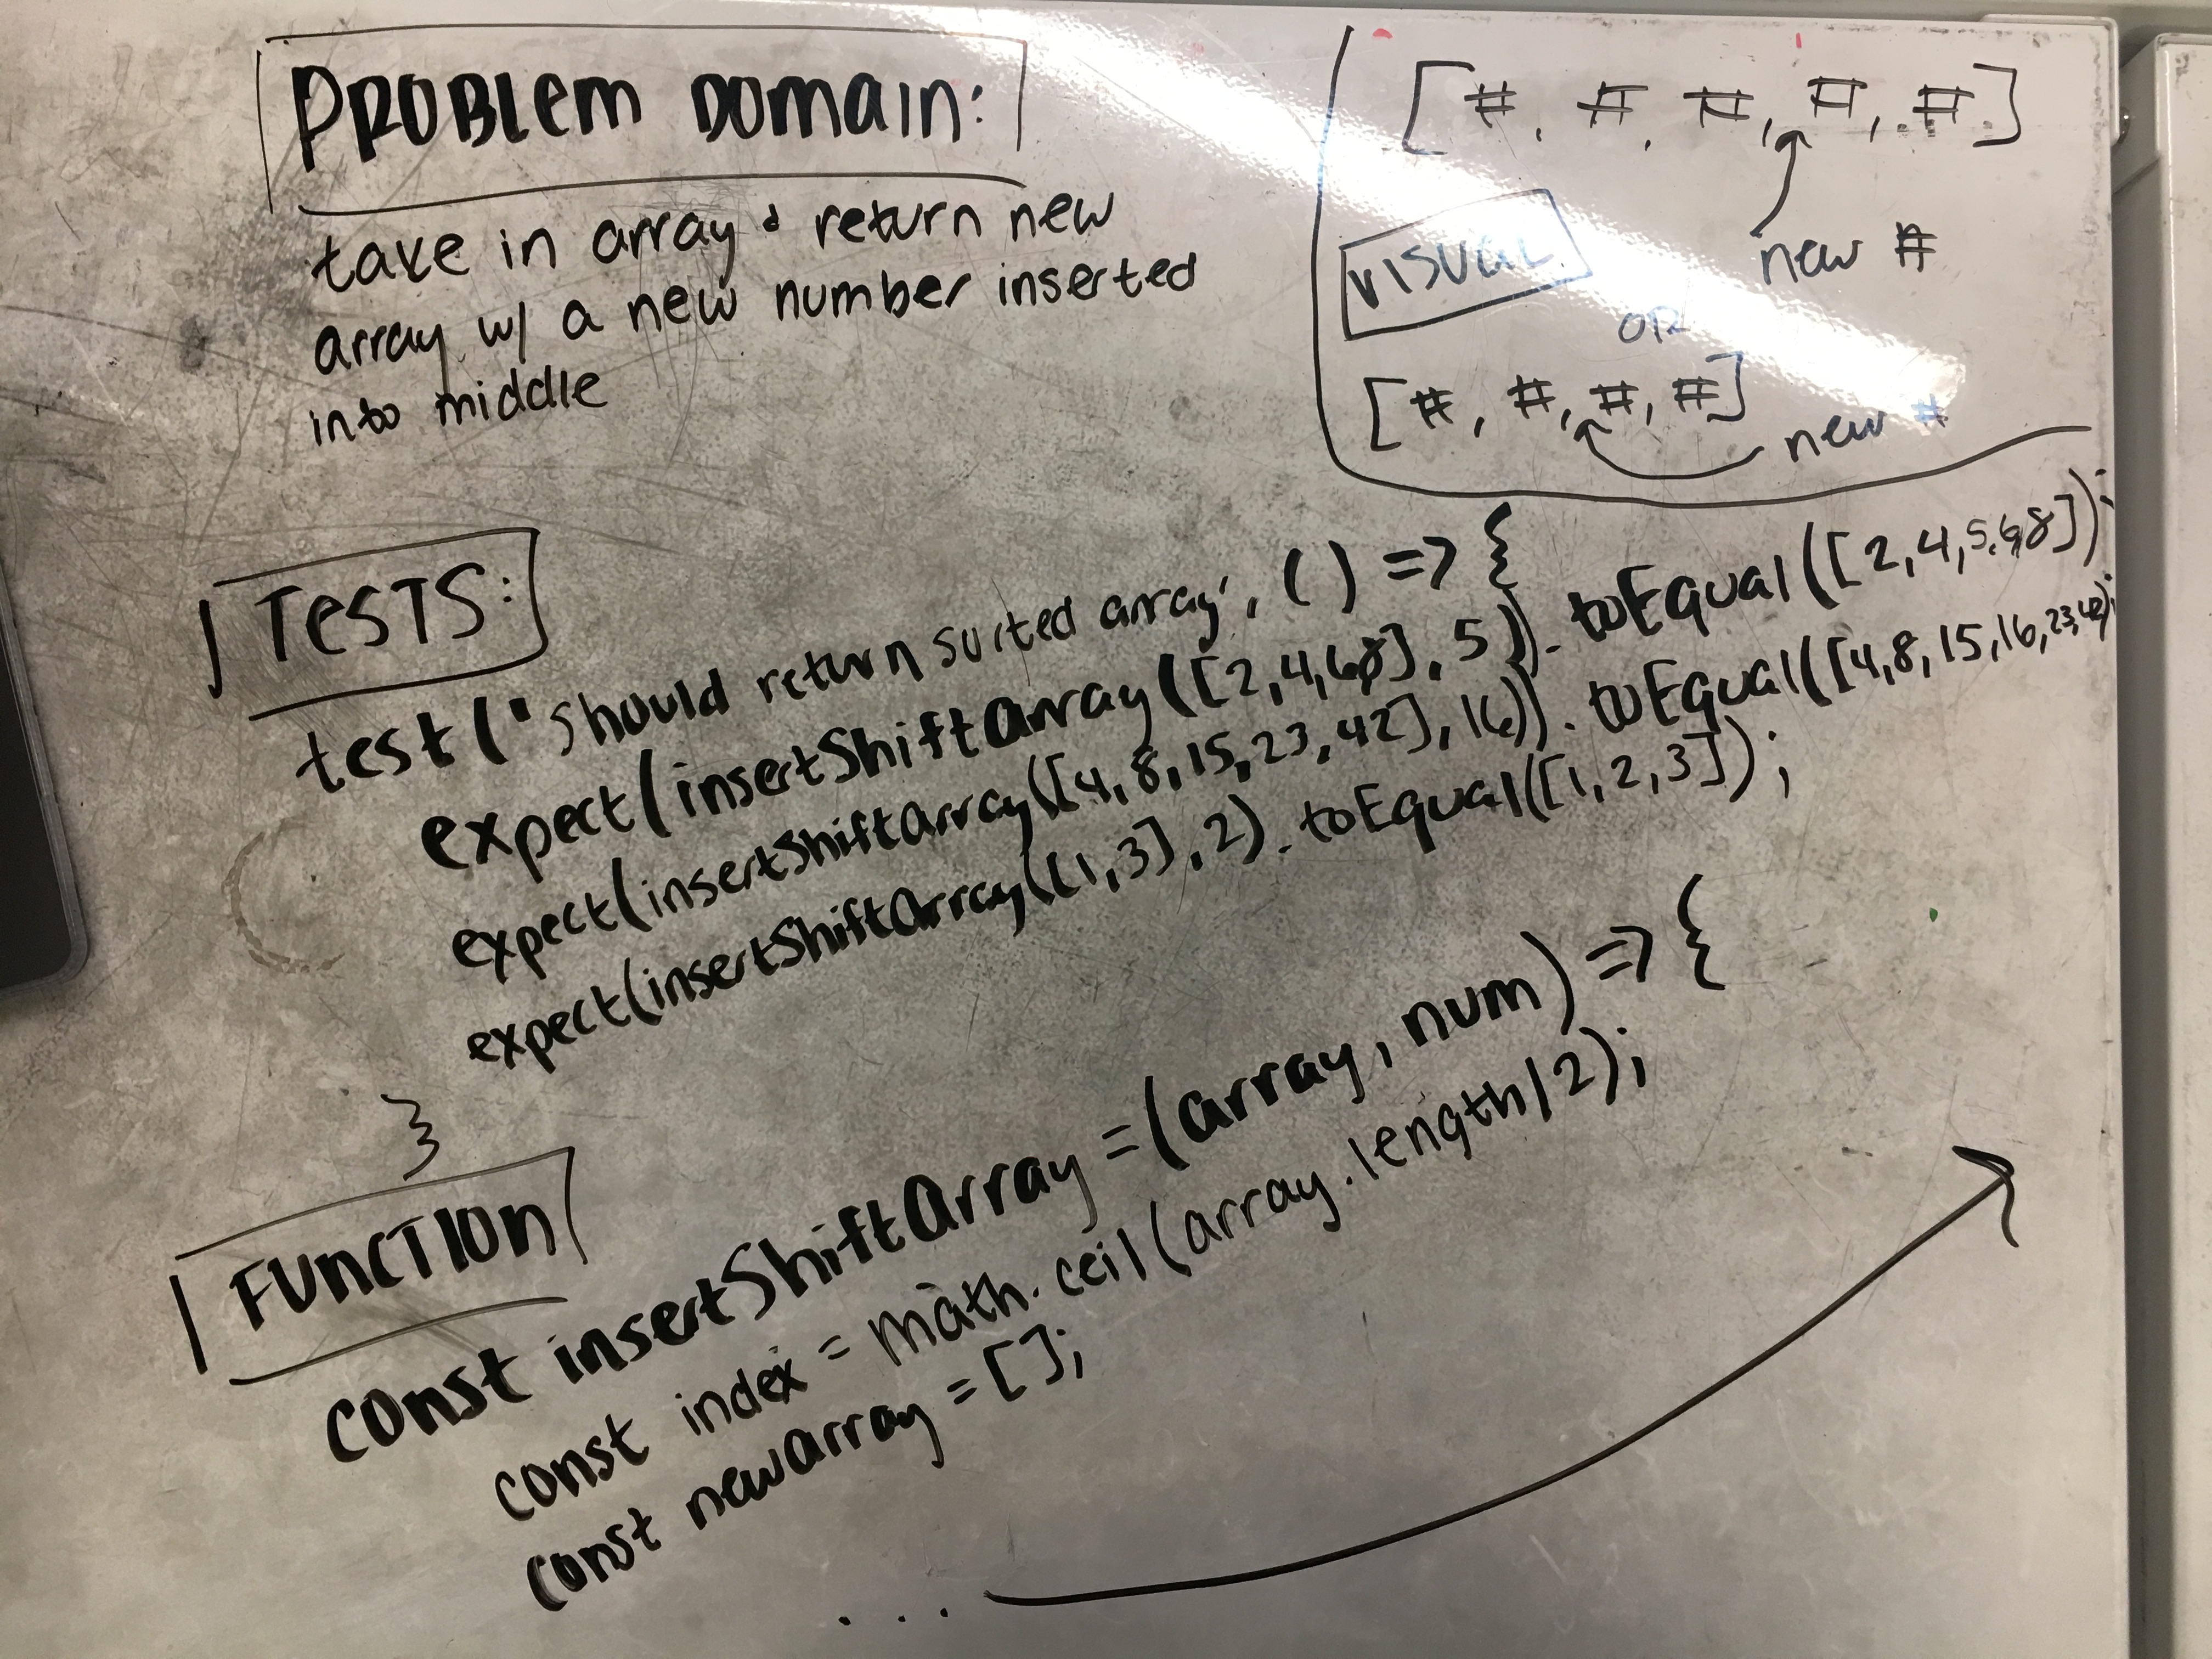 PROBLEM DOMAIN:
take in array & return new
array w/ a new number inserted
into middle
[ #, #, #, #, # ]
new #
VISUAL
OR
[ #, #, #, # ]
new #
TESTS:
test('should return sorted array', () => {
expect(insertShiftArray([2,4,6,8], 5)).toEqual([2,4,5,6,8]);
expect(insertShiftArray([4,8,15,23,42], 16)).toEqual([4,8,15,16,23,42]);
expect(insertShiftArray([1,3], 2).toEqual([1,2,3]);
}
FUNCTION
const insertShiftArray = (array, num) => {
const index = math.ceil(array.length/2);
const newArray = [];
...